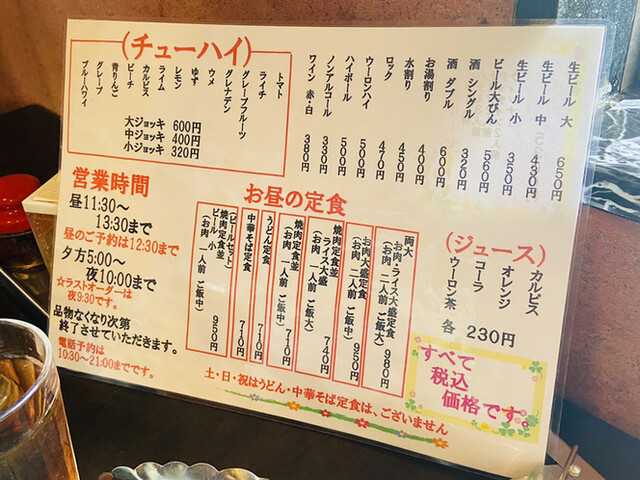 (チューハイ)
トマト
ライチ
グレープフルーツ
グレナデン
ウメ
ゆず
レモン
ライム
カルピス
ピーチ
青りんご
グレープ
ブルーハワイ
大ジョッキ 600円
中ジョッキ 400円
小ジョッキ 320円
生ビール 大 650円
生ビール 中 430円
生ビール 小 350円
ビール大びん 560円
酒 シングル 320円
酒 ダブル 600円
お湯割り 400円
水割り 450円
ロック 470円
ウーロンハイ 500円
ハイボール 500円
ノンアルコール 330円
ワイン 赤・白 380円
営業時間
昼11:30〜
13:30まで
昼のご予約は12:30まで
夕方5:00〜
夜10:00まで
☆ラストオーダーは
夜9:30です。
品物なくなり次第
終了させていただきます。
電話予約は
10:30〜21:00までです。
お昼の定食
両大
お肉・ライス大盛定食
(お肉 二人前 ご飯大) 980円
お肉大盛定食
(お肉 二人前 ご飯中) 950円
焼肉定食並
ライス大盛
(お肉 一人前 ご飯大) 740円
焼肉定食並
(お肉 一人前 ご飯中) 710円
うどん定食 710円
中華そば定食 710円
(ビールセット)
焼肉定食並
ビール 小
(お肉 一人前 ご飯中) 950円
(ジュース)
カルピス
オレンジ
コーラ
ウーロン茶
各 230円
すべて
税込
価格です。
土・日・祝はうどん・中華そば定食は、ございません